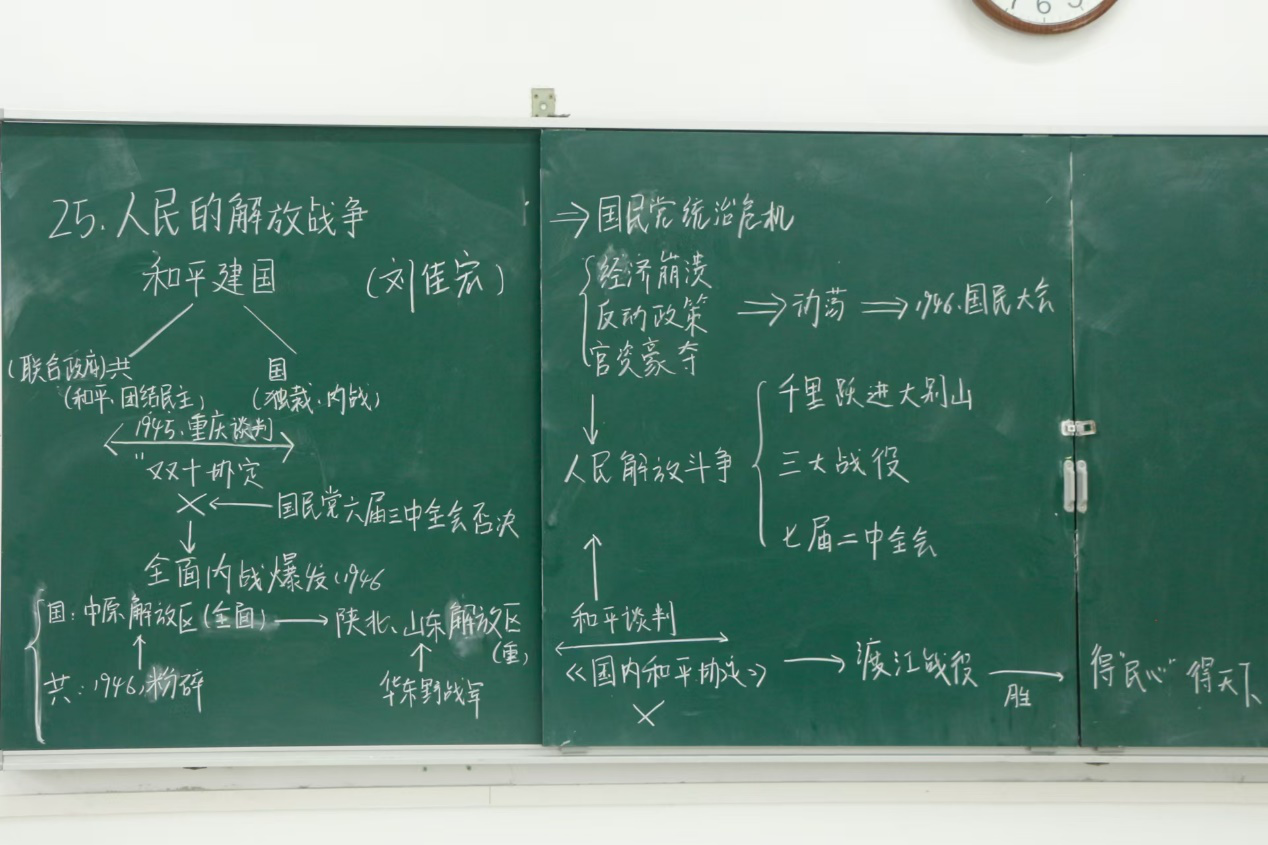 25.人民的解放战争
和平建国 (刘佳宏)
(联合政府)共 国
(和平、团结民主) (独裁、内战)
1945.重庆谈判
"双十协定
×←国民党六届三中全会否决
↓
全面内战爆发,1946
国:中原解放区(全面)→陕北、山东解放区
(重)
共:1946,粉碎 华东野战军
⇒国民党统治危机
经济崩溃
反动政策 ⇒动荡⇒1946.国民大会
官资豪夺
↓
人民解放斗争
千里跃进大别山
三大战役
七届二中全会
↑
和平谈判
《国内和平协定》→渡江战役→得"民心"得天下
胜
×
7 6 5